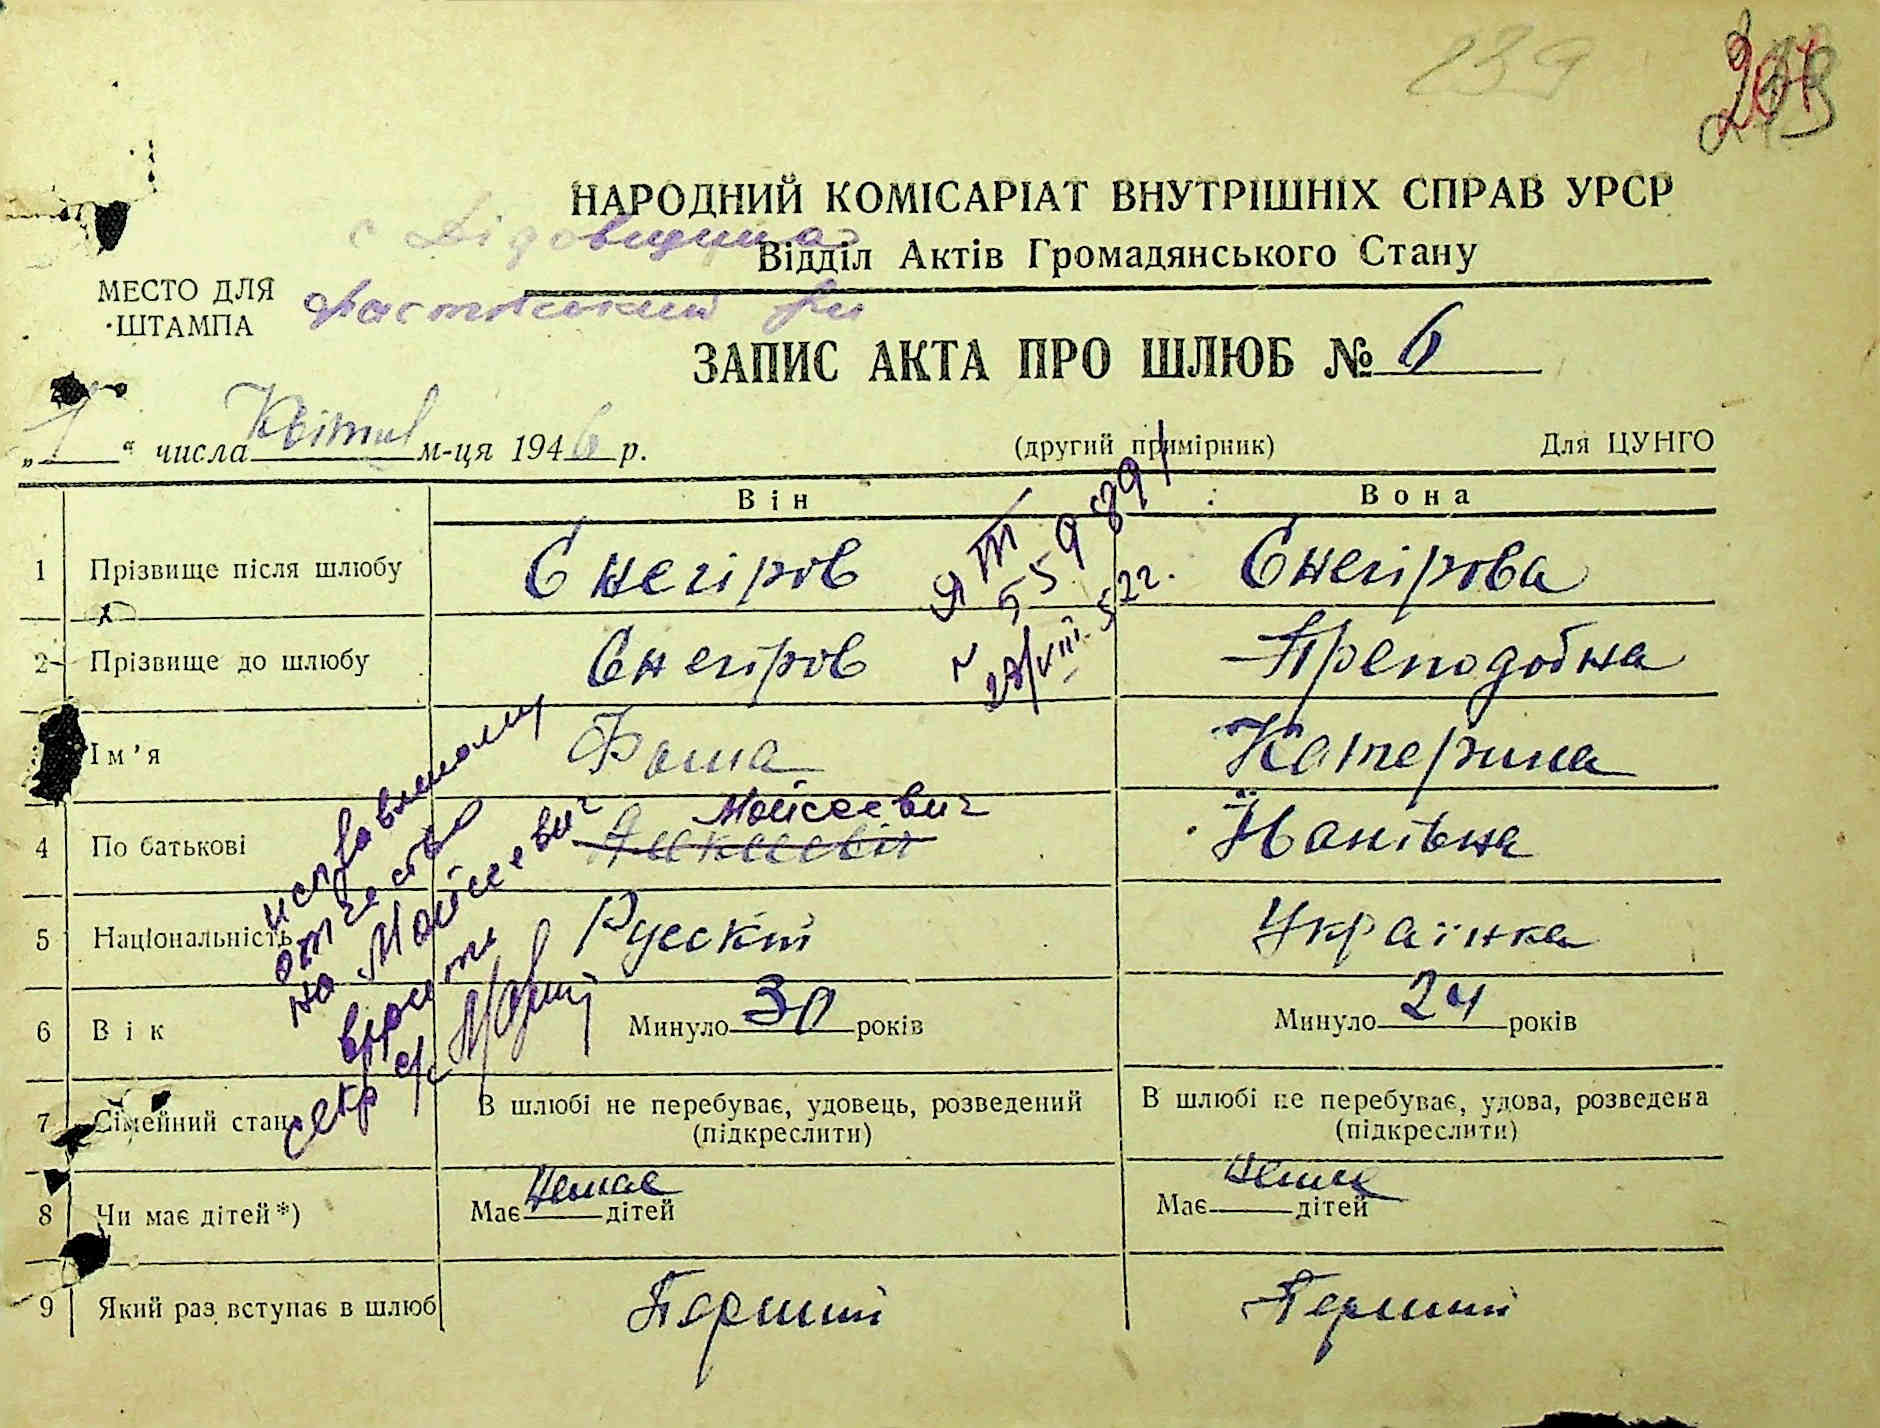 239
НАРОДНИЙ КОМІСАРІАТ ВНУТРІШНІХ СПРАВ УРСР
с Дідовщина
Відділ Актів Громадянського Стану
МЕСТО ДЛЯ
ШТАМПА
Фастівський Р-н
ЗАПИС АКТА ПРО ШЛЮБ № 6
„ 1 “ числа Квітня м-ця 1946 р. (другий примірник) Для ЦУНГО
Він Вона
1 Прізвище після шлюбу Снегіров Снегірова
2 Прізвище до шлюбу Снегіров Преподобна
Ім’я Фома Катерина
4 По батькові Мойсеевич Иванівна
5 Національність Рускій Українка
6 Вік Минуло 30 років Минуло 24 років
7 Сімейний стан В шлюбі не перебуває, удовець, розведений (підкреслити) В шлюбі не перебуває, удова, розведена (підкреслити)
8 Чи має дітей*) Має немае дітей Має немає дітей
9 Який раз вступає в шлюб Первий Первий
исправленому
отчество
на Мойсеевич
верить
секр с/с
559891